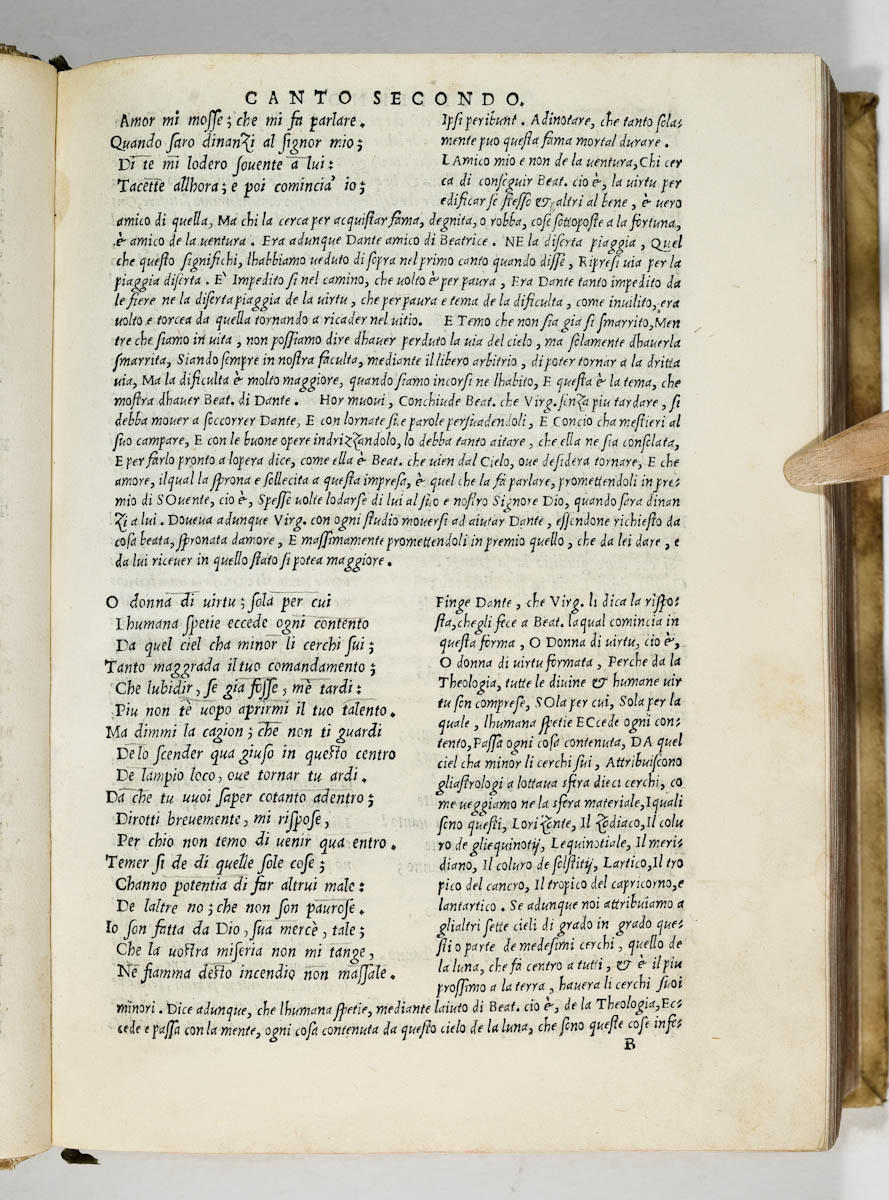 CANTO SECONDO.
Amor mi mosse; che mi fa parlare.
Quando saro dinanzi al signor mio;
Di te mi lodero souente a lui:
Tacette allhora; e poi comincia' io;
Ipsi peribunt. Adinotare, che tanto sola-
mente puo questa fama mortal durare.
LAmico mio e non de la uentura, Chi cer
ca di conseguir Beat. cio è, la uirtu per
edificar se stesso & altri al bene, è uero
amico di quella, Ma chi la cerca per acquistar fama, degnita, o robba, cose sottoposte a la fortuna,
è amico de la uentura. Era adunque Dante amico di Beatrice. NE la diserta piaggia, Quel
che questo significhi, lhabbiamo ueduto di sopra nel primo canto quando disse, Ripresi uia per la
piaggia diserta. E' Impedito si nel camino, che uolto è per paura, Era Dante tanto impedito da
le fiere ne la diserta piaggia de la uirtu, che per paura e tema de la dificulta, come inuilito, era
uolto e torcea da quella tornando a ricader nel uitio. E Temo che non sia gia si smarrito, Men
tre che siamo in uita, non possiamo dire dhauer perduto la uia del cielo, ma solamente dhauerla
smarrita, Siando sempre in nostra faculta, mediante il libero arbitrio, di poter tornar a la dritta
uia, Ma la dificulta è molto maggiore, quando siamo incorsi ne lhabito, E questa è la tema, che
mostra dhauer Beat. di Dante. Hor muoui, Conchiude Beat. che Virg. senza piu tardare, si
debba mouer a soccorrer Dante, E con lornate sue parole persuadendoli, E Concio cha mestieri al
suo campare, E con le buone opere indrizzandolo, lo debba tanto aitare, che ella ne sia consolata,
E per farlo pronto a lopera dice, come ella è Beat. che uien dal Cielo, oue desidera tornare, E che
amore, ilqual la sprona e sollecita a questa impresa, è quel che la fa parlare, promettendoli in pre-
mio di SOuente, cio è, Spesse uolte lodarse di lui al suo e nostro Signore Dio, quando sera dinan
zi a lui. Doueua adunque Virg. con ogni studio mouersi ad aiutar Dante, essendone richiesto da
cosa beata, spronata damore, E massimamente promettendoli in premio quello, che da lei dare, e
da lui riceuer in quello stato si potea maggiore.
O donna di uirtu; sola per cui
Lhumana spetie eccede ogni contento
Da quel ciel cha minor li cerchi sui;
Tanto maggrada il tuo comandamento;
Che lubidir, se gia fosse, mè tardi:
Piu non tè uopo aprirmi il tuo talento.
Ma dimmi la cagion; che non ti guardi
De lo scender qua giuso in questo centro
De lampio loco, oue tornar tu ardi.
Da che tu uuoi saper cotanto adentro;
Dirotti breuemente, mi rispose,
Per chio non temo di uenir qua entro.
Temer si de di quelle sole cose;
Channo potentia di far altrui male:
De laltre no; che non son paurose.
Io son fatta da Dio, sua mercè, tale;
Che la uostra miseria non mi tange,
Ne fiamma desto incendio non massale.
Finge Dante, che Virg. li dica la rispo-
sta, chegli fece a Beat. laqual comincia in
questa forma, O Donna di uirtu, cio è,
O donna di uirtu formata, Perche da la
Theologia, tutte le diuine & humane uir
tu son comprese, SOla per cui, Sola per la
quale, lhumana spetie ECcede ogni con-
tento, Passa ogni cosa contenuta, DA quel
ciel cha minor li cerchi sui, Attribuiscono
gliastrologi a lottaua sfera dieci cerchi, co
me ueggiamo ne la sfera materiale, I quali
sono questi, Lorizonte, Il zodiaco, Il colu
ro de gliequinotij, Lequinotiale, Il meri-
diano, Il coluro de solstitij, Lartico, Il tro
pico del cancro, Il tropico del capricorno, e
lantartico. Se adunque noi attribuiamo a
glialtri sette cieli di grado in grado que-
sti o parte de medesimi cerchi, quello de
la luna, che fa centro a tutti, & è il piu
prossimo a la terra, hauera li cerchi suoi
minori. Dice adunque, che lhumana spetie, mediante laiuto di Beat. cio è, de la Theologia, Ec-
cede e passa con la mente, ogni cosa contenuta da questo cielo de la luna, che sono queste cose infe-
B